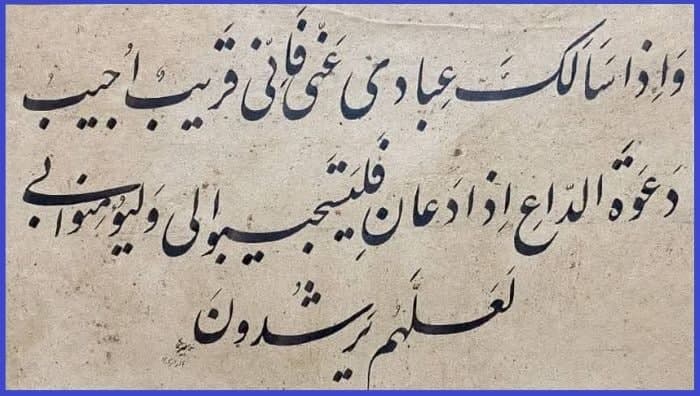 وَاِذا سَاَلَكَ عِبادی عَنّی فَاِنّی قَریبٌ اُجیبُ
دَعوَةَ الدّاعِ اِذا دَعانِ فَلیَستَجیبوالی وَلیُؤمِنوابی
لَعَلَّهُم یَرشُدونَ